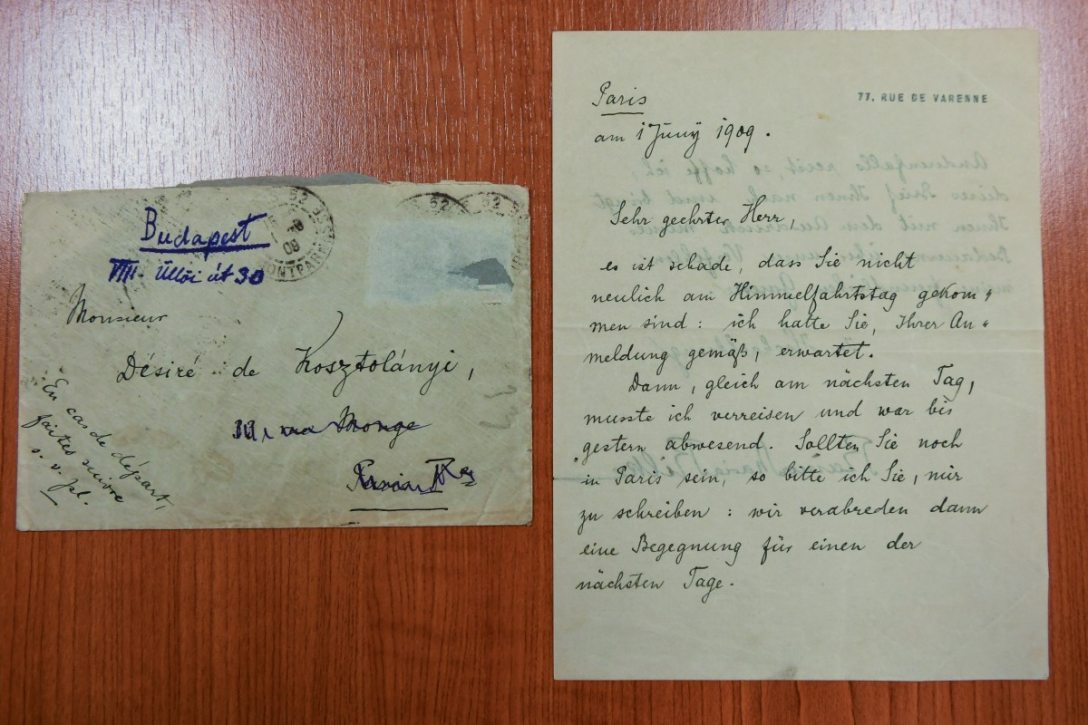 Budapest
VIII. Üllői út 30
Monsieur
Désiré de Kosztolányi,
rue Monge
Paris
En cas de départ,
faites suivre
s. v. pl.
52
09
MONTPARN
77, RUE DE VARENNE
Paris
am 1 Juny 1909.
Sehr geehrter Herr,
es ist schade, dass Sie nicht
neulich am Himmelfahrtstag gekom=
men sind: ich hatte Sie, Ihrer An=
meldung gemäß, erwartet.
Dann, gleich am nächsten Tag,
musste ich verreisen und war bis
gestern abwesend. Sollten Sie noch
in Paris sein, so bitte ich Sie, mir
zu schreiben: wir verabreden dann
eine Begegnung für einen der
nächsten Tage.